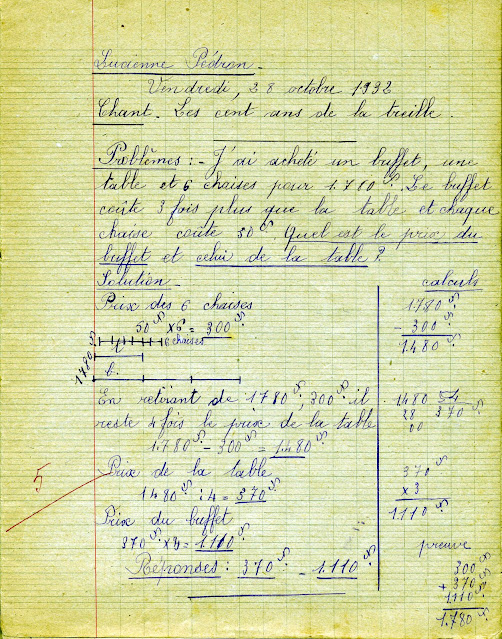 Lucienne Pédron.
Vendredi, 28 octobre 1932
Chant. Les cent ans de la treille.
Problèmes :- J'ai acheté un buffet, une
table et 6 chaises pour 1.780f. Le buffet
coûte 3 fois plus que la table et chaque
chaise coûte 50f. Quel est le prix du
buffet et celui de la table ?
Solution -
Prix des 6 chaises
50f x 6 = 300f
6 chaises
t
1780f
b.
En retirant de 1780f, 300f il
reste 4 fois le prix de la table
1.780f - 300f = 1.480f
Prix de la table
1480f : 4 = 370f
Prix du buffet
370f x 3 = 1.110f
Réponses : 370f - 1.110f
5
calculs
1780f
- 300f
1.480f
1480 4
28 370f
00
370f
x 3
1.110f
preuve
300f
+ 370f
1.110f
1.780f